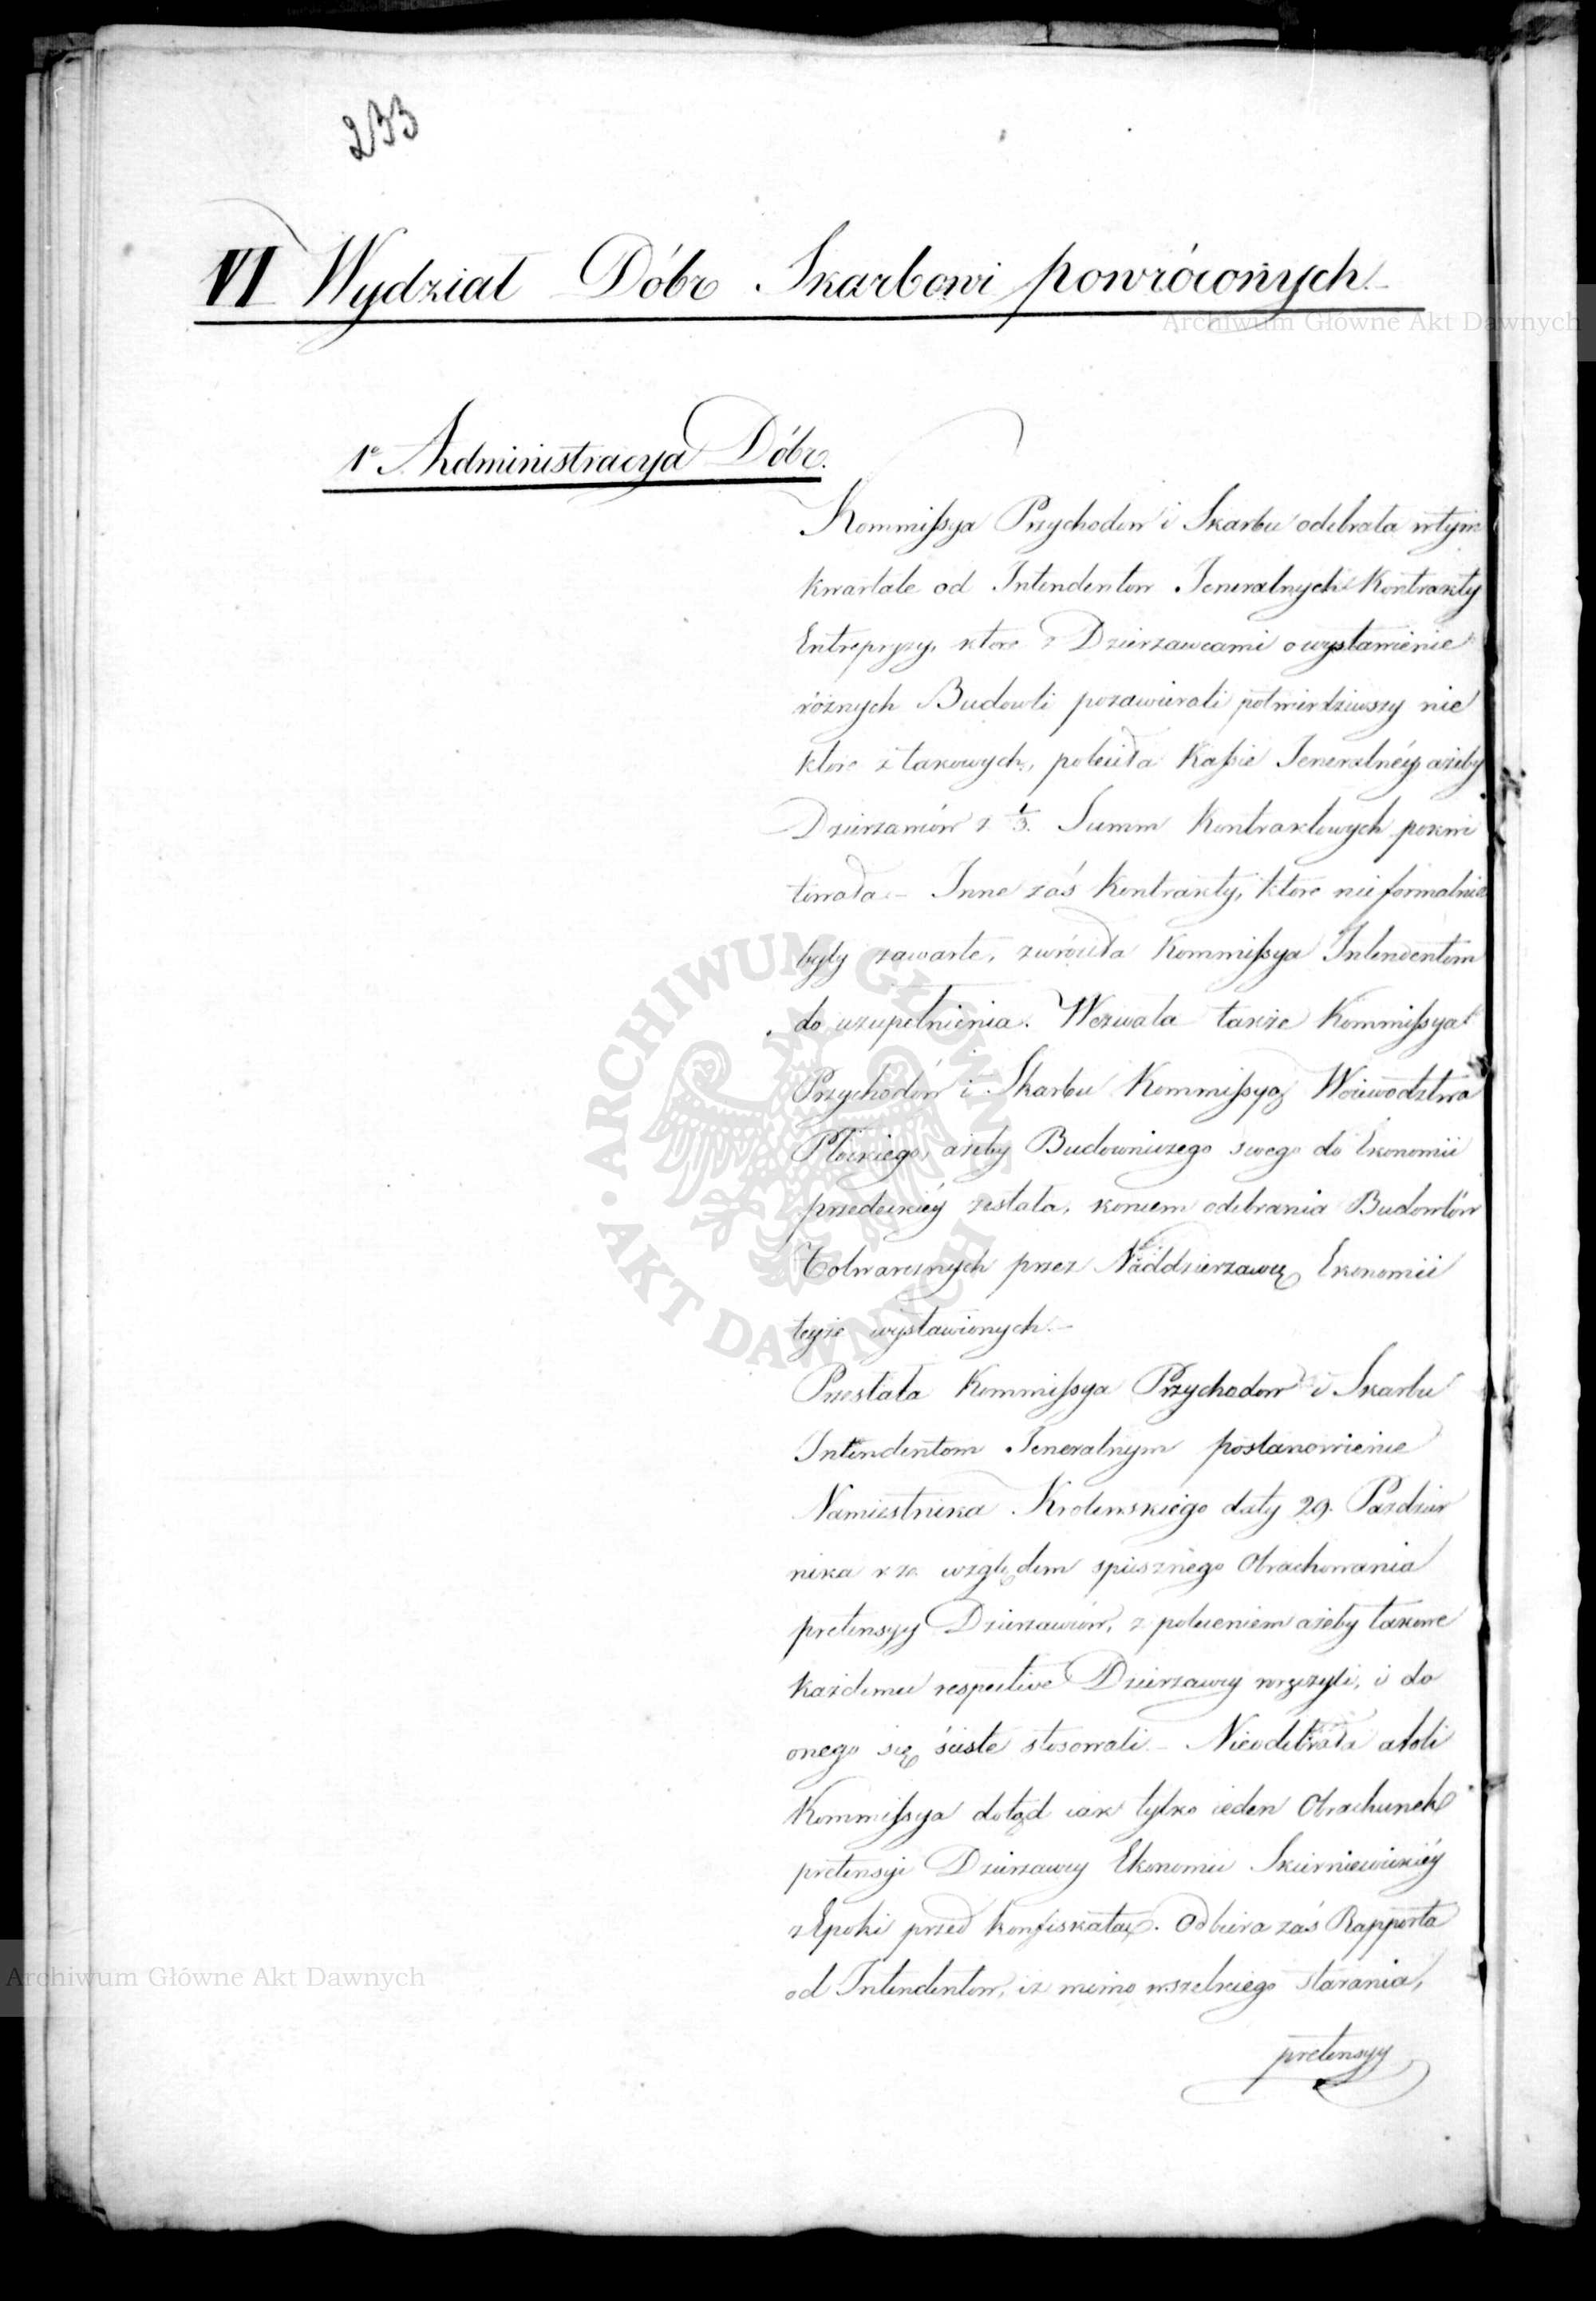 233
VI Wydział Dóbr Skarbowi powróconych.
1o Administracya Dóbr.
Kommissya Przychodow i Skarbu odebrała w tym
kwartale od Intendentow Jeneralnych Kontrakty
Entrepryzy, ktore z Dzierzawcami o wystawienie
róznych Budowli pozawierali potwierdziwszy nie
ktore z takowych, poleciła Kassie Jeneralnéy, ażeby
Dzierzawców z 1/3. Summ Kontraktowych pokwi
towała. – Inne zaś Kontrakty, ktore nie formalnie
były zawarte, zwróciła Kommissya Intendentom
do uzupełnienia. Wezwała także Kommissya
Przychodów i Skarbu Kommissyą Woiewodztwa
Płockiego, ażeby Budowniczego swego do Ekonomii
zesłała, koncem odebrania Budowlów
Folwarcznych przez Naddzierzawcę Ekonomii
teyże wystawionych. –
Przesłała Kommissya Przychodow i Skarbu
Intendentom Jeneralnym postanowienie
Namiestnika Krolewskiego daty 29. Pazdzier
nika względem spiesznego Obrachowania
pretensyy Dzierzawców, z poleceniem ażeby takowe
każdemu respective Dzierzawcy wręczyli, i do
onego się ściśle stosowali. – Nieodebrała atoli
Kommissya dotąd iak tylko ieden Obrachunek
pretensyi Dzierzawcy Ekonomii Skierniewickiéy
z Epoki przed konfiskatą. Odbiera zaś Rapporta
od Intendentow, iz mimo wszelkiego starania,
pretensyy
Archiwum Główne Akt Dawnych
Archiwum Główne Akt Dawnych
ARCHIWUM GŁÓWNE AKT DAWNYCH